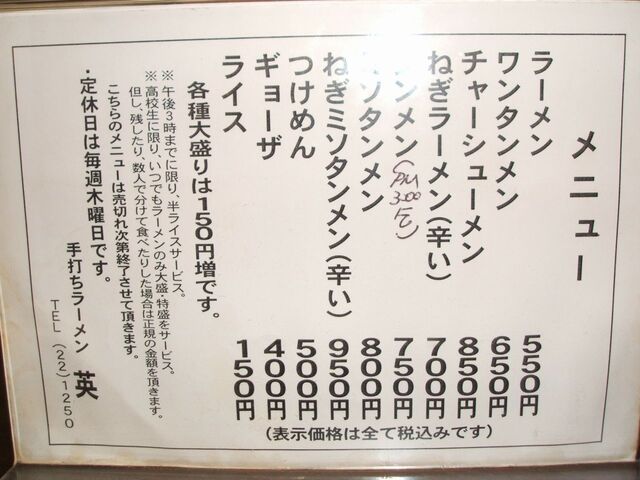 メニュー
ラーメン 550円
ワンタンメン 650円
チャーシューメン 850円
ねぎラーメン(辛い) 700円
ンメン 750円
ソタンメン 800円
ねぎミソタンメン(辛い) 950円
つけめん 500円
ギョーザ 400円
ライス 150円
(表示価格は全て税込みです)
各種大盛りは150円増です。
※午後3時までに限り、半ライスサービス。
※高校生に限り、いつでもラーメンのみ大盛・特盛をサービス。
但し、残したり、数人で分けて食べたりした場合は正規の金額を頂きます。
こちらのメニューは売切れ次第終了させて頂きます。
・定休日は毎週木曜日です。
手打ちラーメン 英
TEL (22)1250